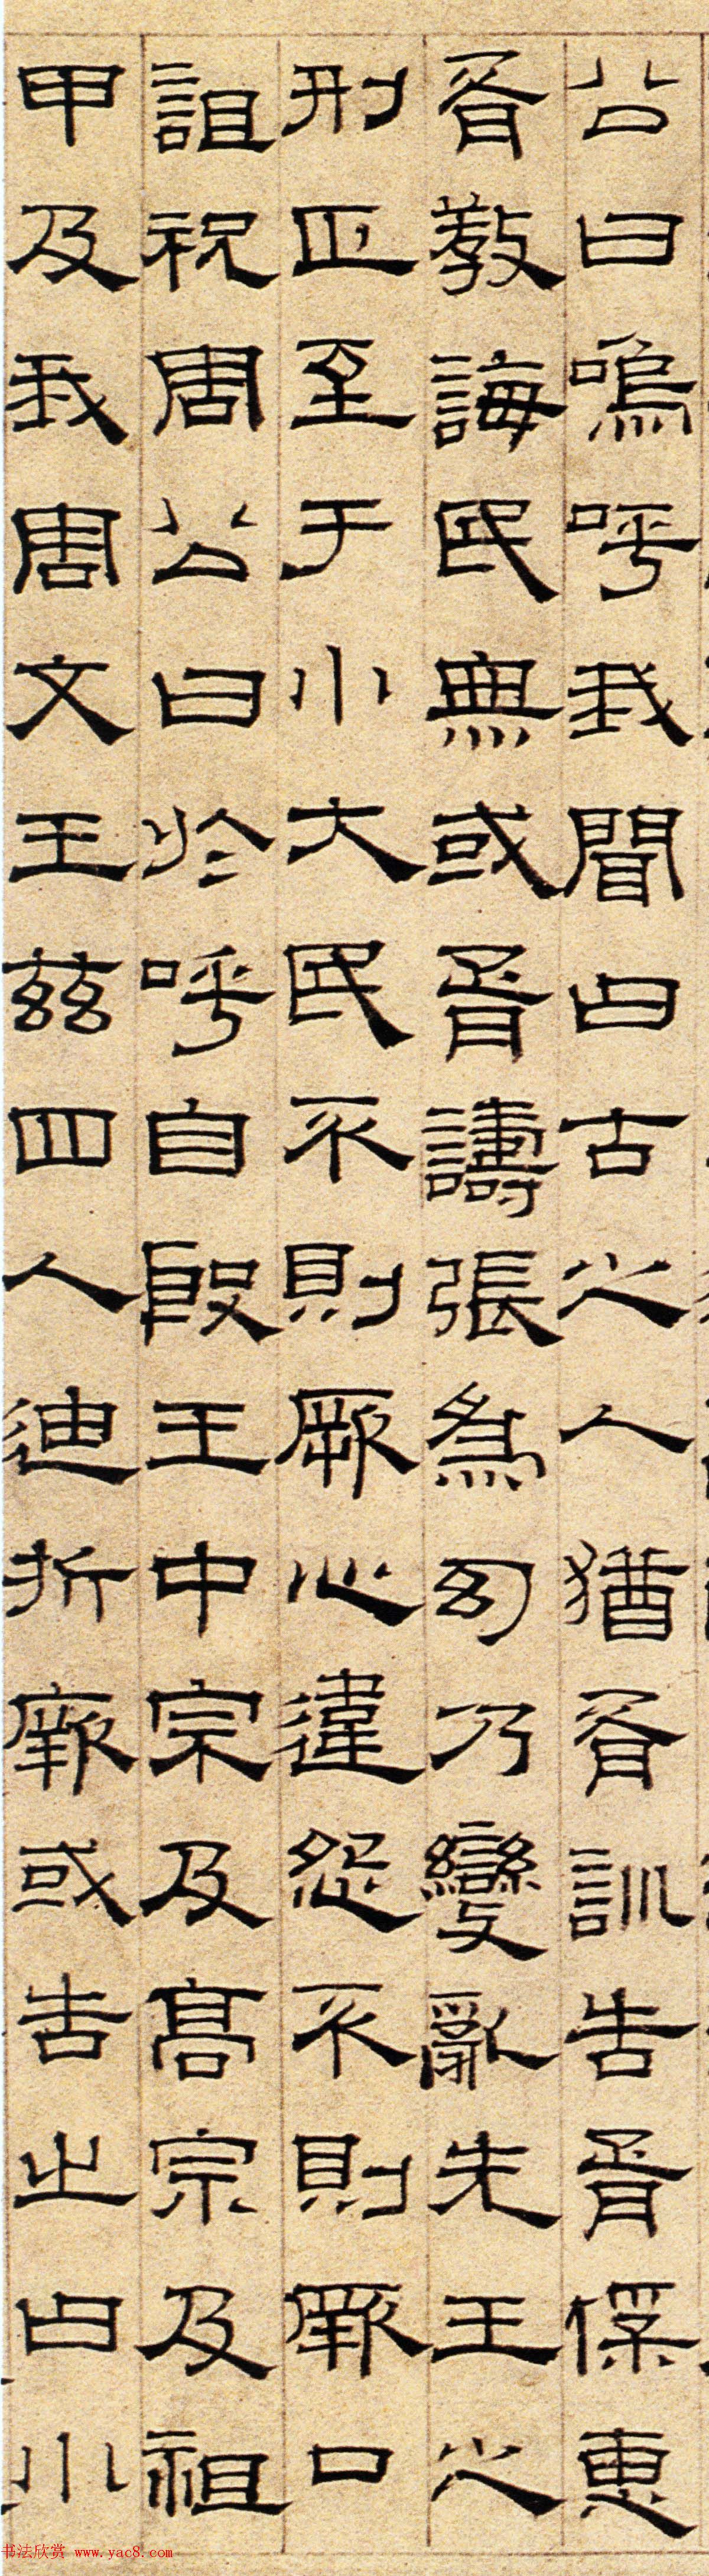 公曰嗚呼我聞曰古之人猶胥訓告胥保惠
胥教誨民無或胥譸張為幻乃變亂先王之
刑正至于小大民不則厥心違怨不則厥口
詛祝周公曰於呼自殷王中宗及高宗及祖
甲及我周文王茲四人迪折厥或告之曰小
书法欣赏 www.yac8.com